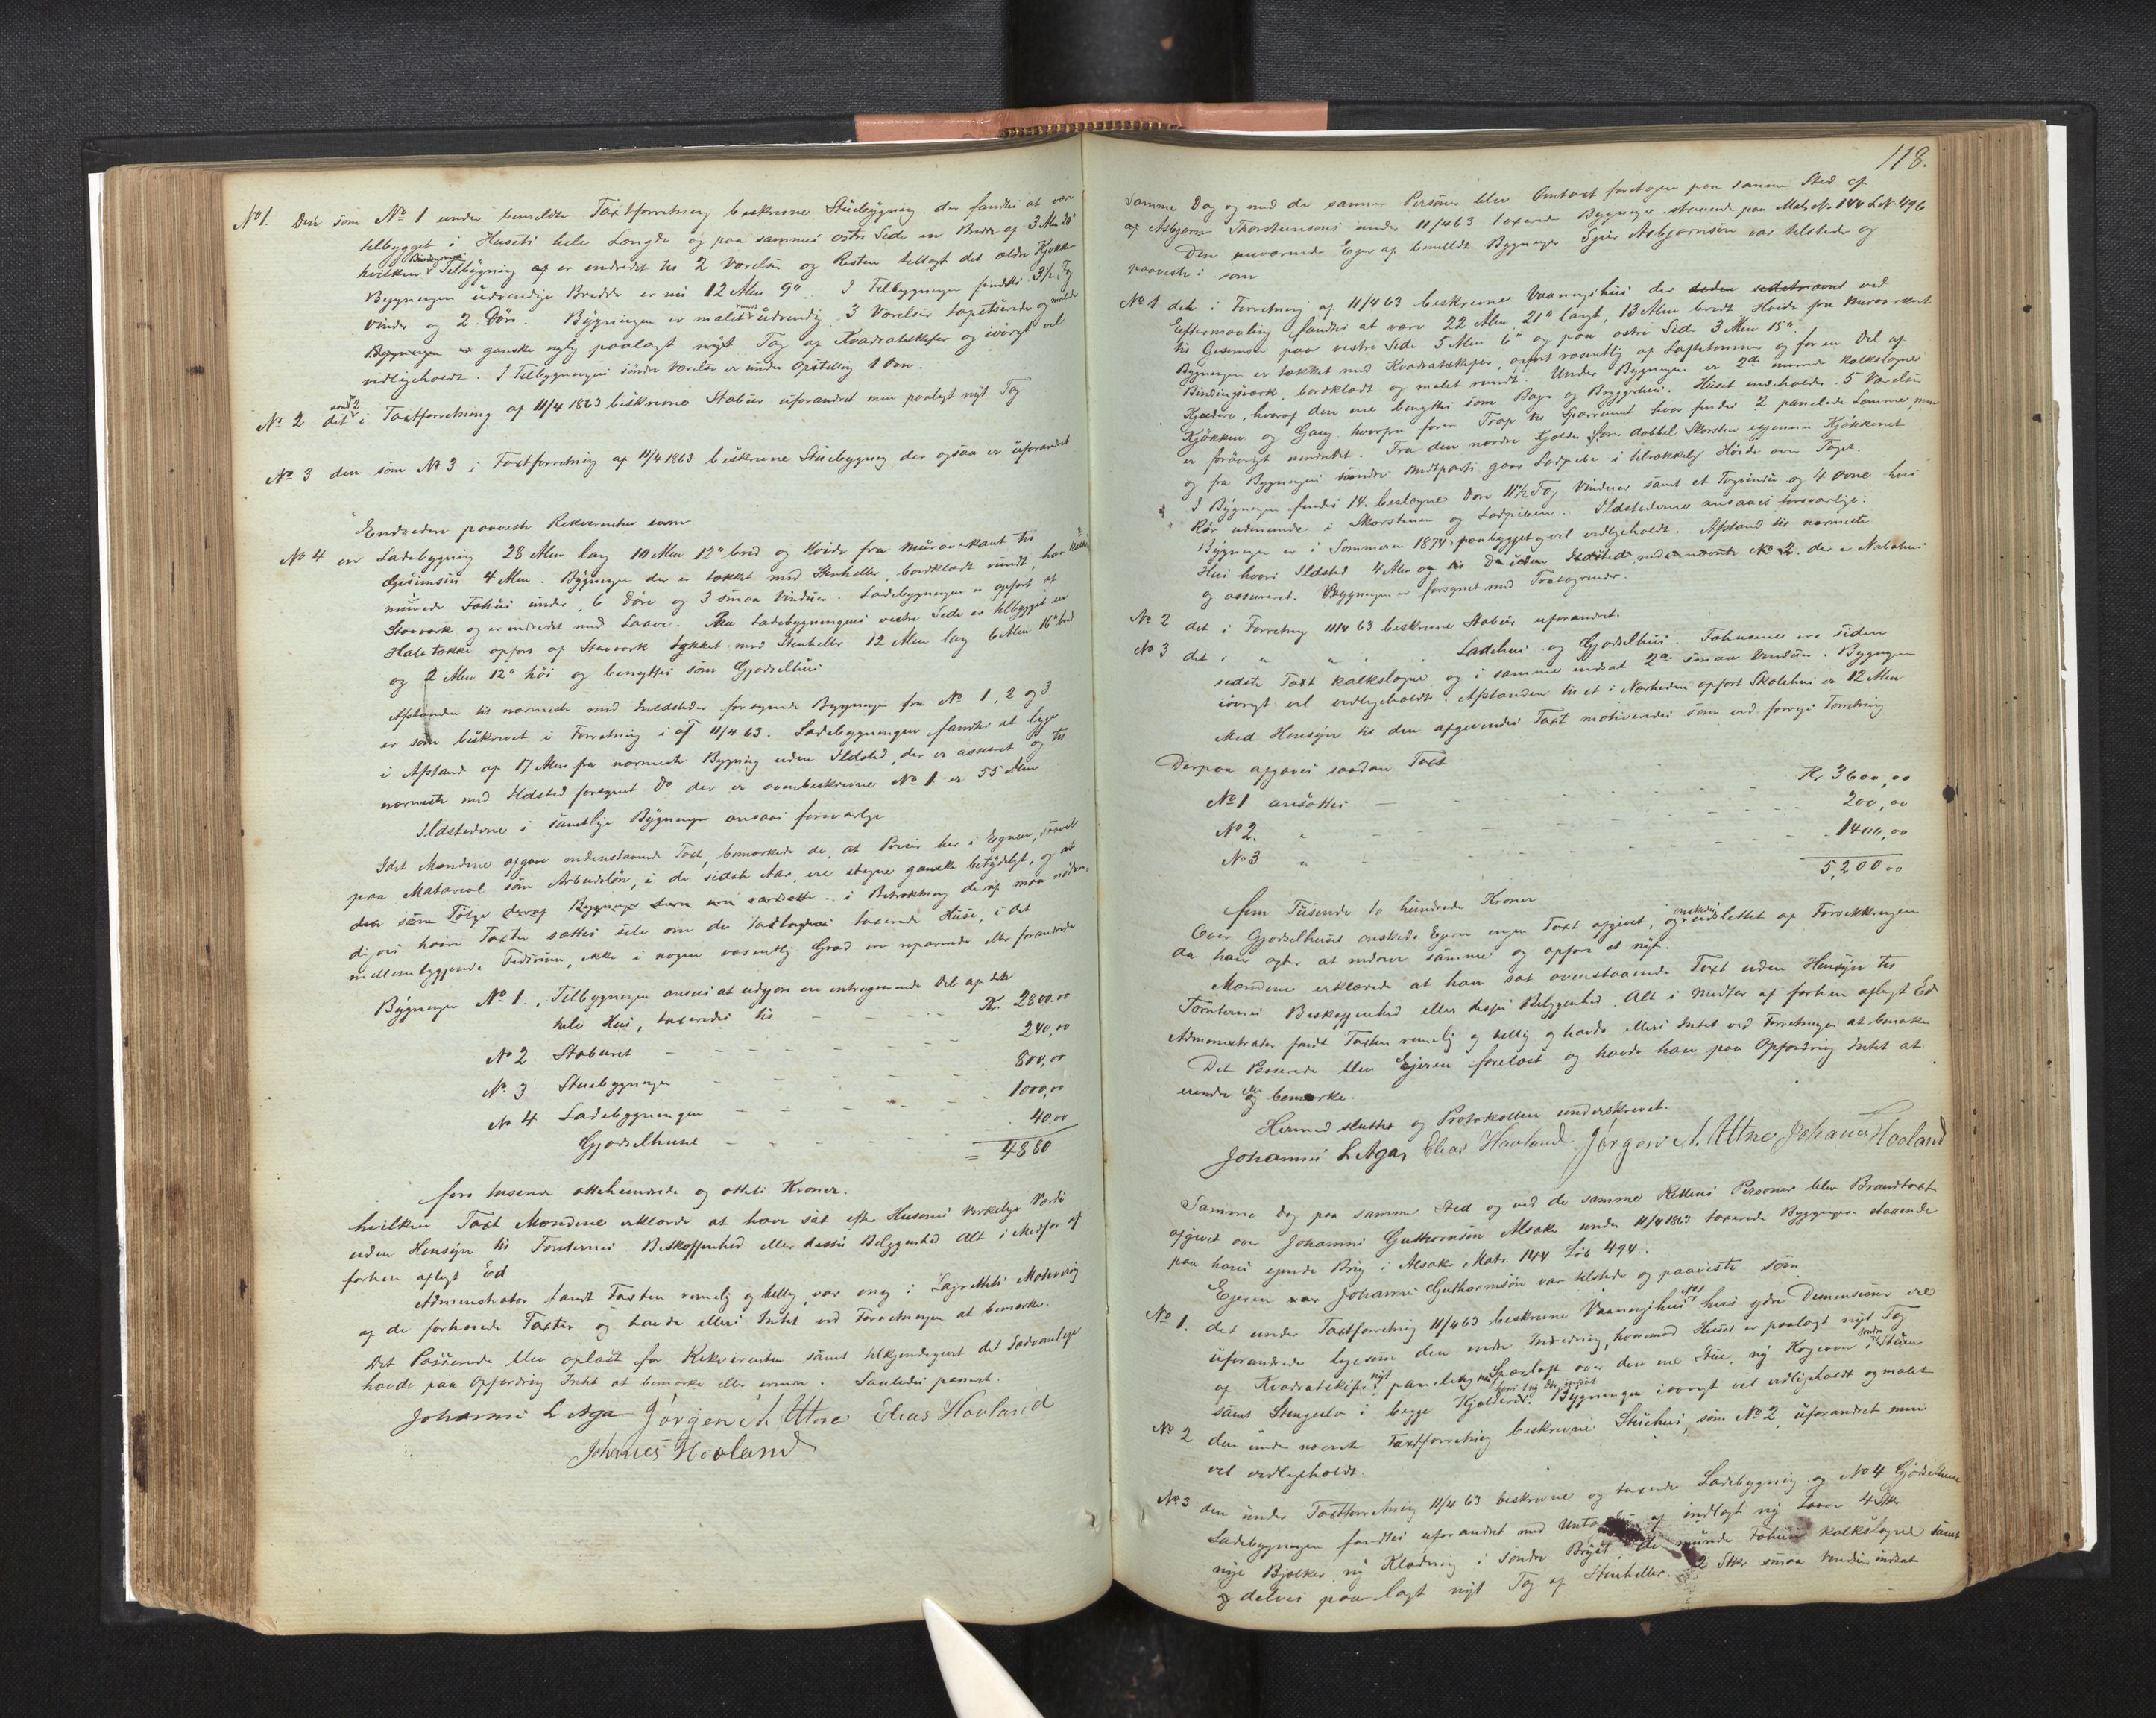 No 1. Den som No 1 under bemeldte Taxtforretning beskrevne Stuebygning der fandtes at være
tilbygget i Husets hele Længde og paa sammes østre Side en Bredde af 3 Alen 20"
hvilken Tilbygning af er indredet til 2 Værelser og Resten tillagt det ældre Kjøkken
Bygningen udvendige Bredde er nu 12 Alen 9". I Tilbygningen findes 3½ Fag
Vinder og 2 Døre. Bygningen er malet udvendig 3 Værelser tapetserede og malede
Bygningen er ganske nylig paalagt nyt Tag af Kvadratskifer og iøvrigt vel
vedligeholdt. I Tilbygningens søndre Værelse er under Opstilling 1 Ovn.
No 2 det som No 2 i Taxtforretning af 11/4 1863 beskrevne Stabur uforandret men paalagt nyt Tag
No 3 den som No 3 i Taxtforretning af 11/4 1863 beskrevne Stuebygning der ogsaa er uforandret
Endvidere paaviste Rekvirenten som
No 4 en Ladebygning 28 Alen lang 10 Alen 12" bred og Høide fra Muroverkant til
Gesimsen 4 Alen. Bygningen der er tækket med Stenheller, bordklædt rundt, har
murede Fæhus under, 6 Døre og 3 smaa Vinduer. Ladebygningen er opført af
Stavværk og er indredet med Laave. Paa Ladebygningens vestre Side er tilbygget en
Halvtække opført af Stavværk tækket med Stenheller 12 Alen lang 6 Alen 16" bred
og 2 Alen 12" høi og benyttes som Gjødselhus
Afstanden til nærmeste med Ildsteder forsynede Bygninger fra No 1, 2 og 3
er som beskrevet i Forretning af 11/4 63. Ladebygningen fandtes at ligge
i Afstand af 17 Alen fra nærmeste Bygning uden Ildsted, der er assureret og til
nærmeste med Ildsted forsynet Do der er ovenbeskrevne No 1 er 55 Alen
Ildstederne i samtlige Bygninger ansaaes forsvarlige
Idet Mændene afgave nedenstaaende Taxt, bemærkede de, at Priser her i Egnen, saavel
paa Material som Arbeidsløn, i de sidste Aar, ere stegne ganske betydeligt, og at
der som Følge deraf i Betragtning deraf maa nødven-
digvis høiere Taxter sættes selv om de taxerede Huse, i det
mellemliggende Tidsrum, ikke i nogen væsentlig Grad ere reparerede eller forandrede
Bygningen No 1. Tilbygningen ansees at udgjøre en integrerende Del af det
hele Hus, taxeredes til Kr. 2800.00
No 2 Staburet 240,00
No 3 Stuebygningen 800,00
No 4 Ladebygningen 1000,00
Gjødselhuset 40.00
= 4880
fire tusende ottehundrede og otteti Kroner.
hvilken Taxt Mændene erklærede at have sat efter Husenes virkelige Værdi
uden Hensyn til Tomternes Beskaffenhed eller dessens Beliggenhed Alt i Medfør af
forhen aflagt Ed
Administrator fandt Taxten rimelig og billig, var enig i Lagrettets Motivering
af de forhøiede Taxter og havde ellers Intet ved Forretningen at bemærke.
Det Passerede blev oplæst for Rekvirenten samt tilkjendegivet det Sædvanlige
havde paa Opfordring Intet at bemærke eller erindre. Saaledes passeret.
Johannes L Aga Jørgen A. Utne Elias Hovland
Johanes Hovland
118.
Samme Dag og med de samme Personer blev Omtaxt foretagen paa samme Sted af
af Asbjørn Thorsteinsens under 11/4 63 taxerede Bygninger staaende paa Matr No 144 L.No 496
Den nuværende Eger af bemeldte Bygninger Sjur Asbjørnsen var tilstede og
paaviste: som
No 1 det i Forretning af 11/4 63 beskrevne Vaaningshus der ved
Eftermaaling fandtes at være 22 Alen 21" langt, 13 Alen bredt Høide fra Muroverkant
til Gesimsen paa vestre Side 5 Alen 6" og paa østre Side 3 Alen 15".
Bygningen er tækket med Kvadratskifer, opført væsentlig af Laftetømmer og for en Del af
Bindingsværk, bordklædt og malet rundt. Under Bygningen er 2de murede kalkslagne
Kjældere, hvoraf den ene benyttes som Bage og Bryggerhus. Huset indeholder 5 Værelser
Kjøkken og Gang hvorfra fører Trap til Sparrumet hvor findes 2 panelede Lemme, men
er forøvrigt uindredet. Fra den nordre Kjælder fører dobbel Skorsten igjennem Kjøkkenet
og fra Bygningens søndre Midtparti gaar Ladpibe i tilrækkelig Høide over Taget.
I Bygningen findes 14 beslagne Døre 11½ Fag Vinduer samt et Tagvindu og 4 Ovne hvis
Rør udmunde i Skorstenen og Ladpiben. Ildstederne ansaaes forsvarlige.
Bygningen er i Sommeren 1874 paabygget og vel vedligeholdt. Afstand til nærmeste
Hus hvori Ildsted 4 Alen og No 2 der er Nabohus
og assureret. Bygningen er forsynet med Tratagrender.
No 2 det i Forretning 11/4 63 beskrevne Stabur uforandret.
No 3 det i " " Ladehus og Gjødselhus. Fæhusene ere siden
sidste Taxt kalkslagne og i samme indsat 2de smaa Vinduer. Bygningen
iøvrigt vel vedligeholdt. Afstanden til et i Nærheden opført Skolehus er 12 Alen
Med Hensyn til den afgivendes Taxt motiveredes som ved forrige Forretning
Derpaa afgaves saadan Taxt
No 1 ansættes Kr. 3600,00
No 2. " 200,00
No 3 " 1400,00
5,200 00
fem Tusende to hundrede Kroner
Over Gjødselhuset ønskede Egeren ingen Taxt afgivet, og ønskedes udslettet af Forsikkringen
da han agter at nedrive samme og opføre et nyt.
Mændene erklærede at have sat ovenstaaende Taxt uden Hensyn til
Tomternes Beskaffenhed eller dessens Beliggenhed. Alt i Medfør af forhen aflagt Ed
Administrator fandt Taxten rimelig og billig og havde ellers Intet ved Forretningen at bemærke
Det Passerede blev Ejeren forelæst og havde han paa Opfordring Intet at
erindre eller bemærke.
Hermed sluttet og Protokollen underskrevet.
Johannes L Aga, Elias Hovland Jørgen A. Utne Johanes Hovland
Samme Dag paa samme Sted og ved de samme Rettens Personer blev Brandtaxt
afgivet over Johannes Guthormsøn Alsaker under 11/4 1863 taxerede Bygninger staaende
paa hans ejende Brug i Alsaker Matr. 144 Løb 494.
Egeren Johannes Guthormsøn var tilstede og paaviste som
No 1. det under Taxtforretning 11/4 63 beskrevne Vaaningshus hvis ydre Dimensioner ere
uforandrede ligesom den indre Indredning, hvorimod Huset er paalagt nyt Tag
af Kvadratskifer, paneling Sparloft over den ene Stue, ny Kogeovn i søndre Stuen
samt Stengulv i begge Kjælderne. Bygningen iøvrigt vel vedligeholdt og malet
No 2 den under nævnte Taxtforretning beskrevne Stuehus, som No 2, uforandret men
vel vedligeholdt.
No 3 den under Taxtforretning 11/4 63 beskrevne og taxerede Ladebygning og No 4 Gjødselhuus
Ladebygningen fandtes uforandret med Undtagelse af indlagt ny Laave 4 Stk
nye Bjælker, ny Klædning i søndre Bryst, murede Fæhuse kalkslagne samt
og delvis paalagt nyt Tag af Stenheller. 2 Stkr smaa Vinduer indsat